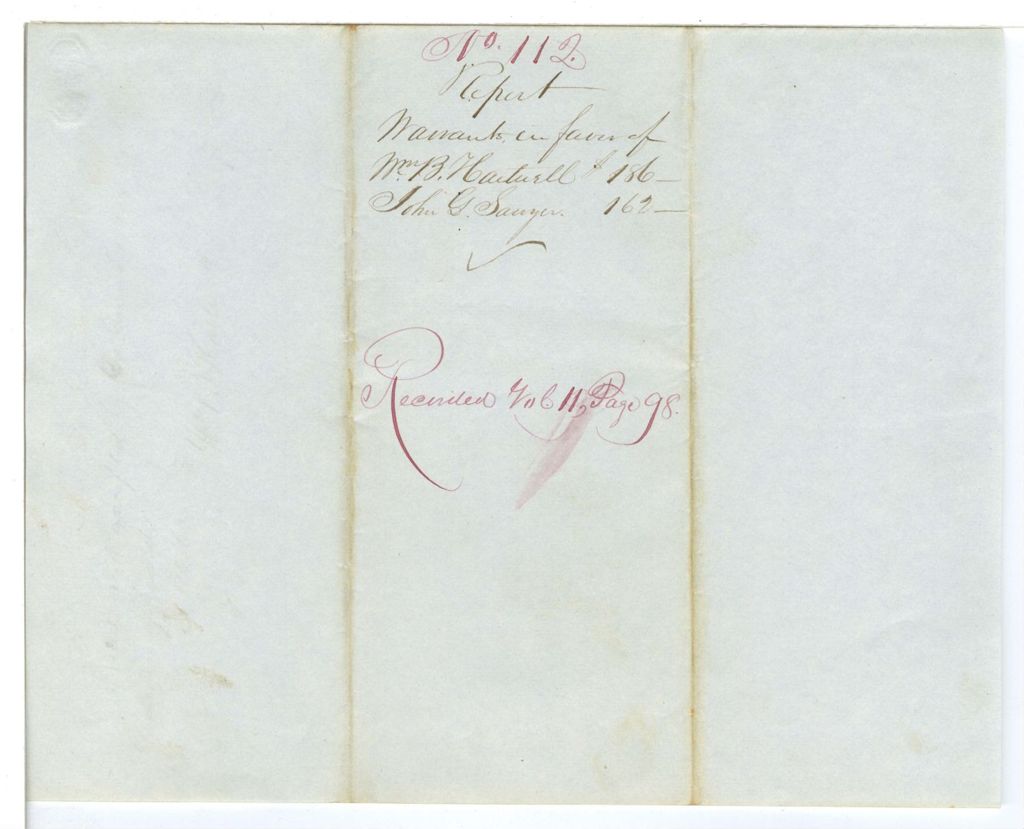 No. 112.
Report
Warrants in favor of
Wm B. Hartwell $ 186—
John G. Sawyer. 162—
Recorded Vol 11, Page 98.